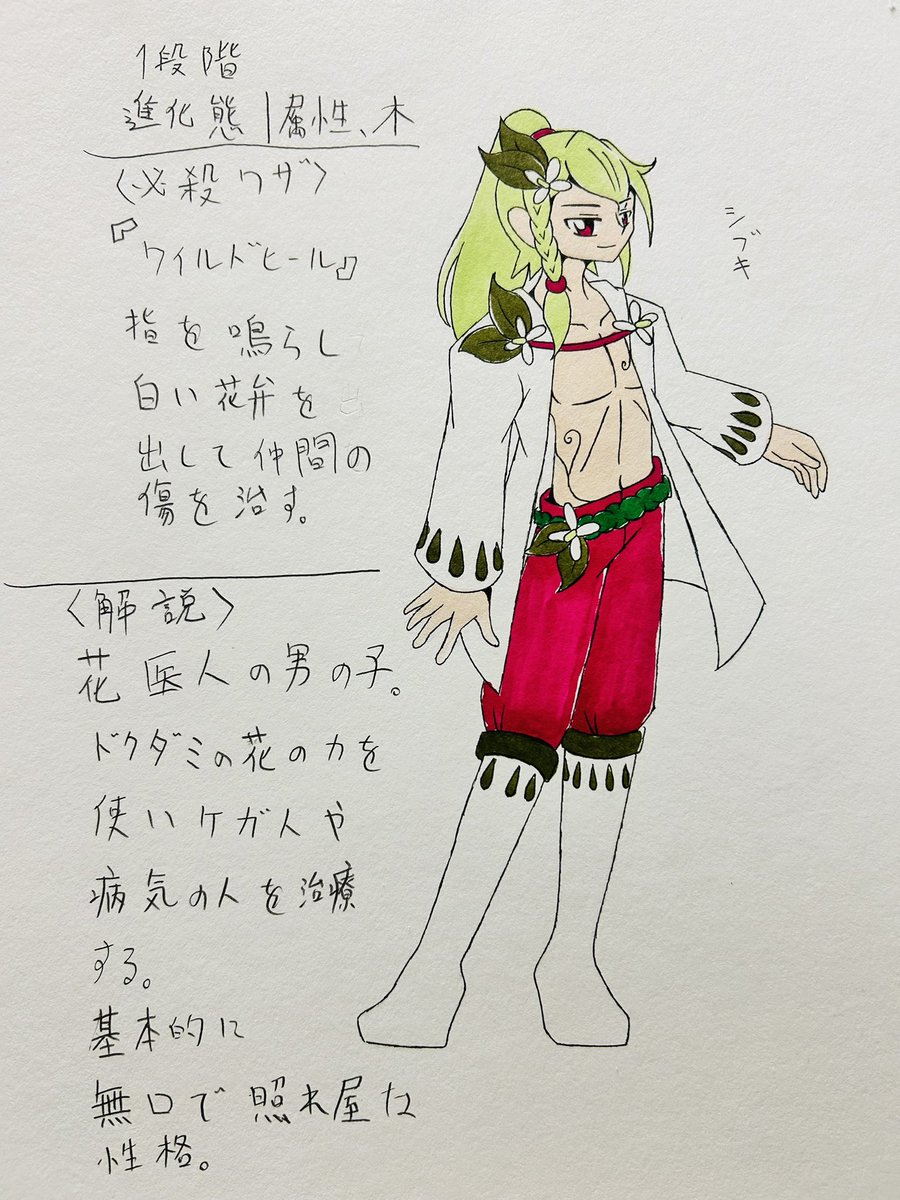 1段階
進化態|属性、木
〈必殺ワザ〉
『ワイルドヒール』
指を鳴らし
白い花弁を
出して仲間の
傷を治す。
シブキ
〈解説〉
花医人の男の子。
ドクダミの花の力を
使いケガ人や
病気の人を治療
する。
基本的に
無口で照れ屋な
性格。